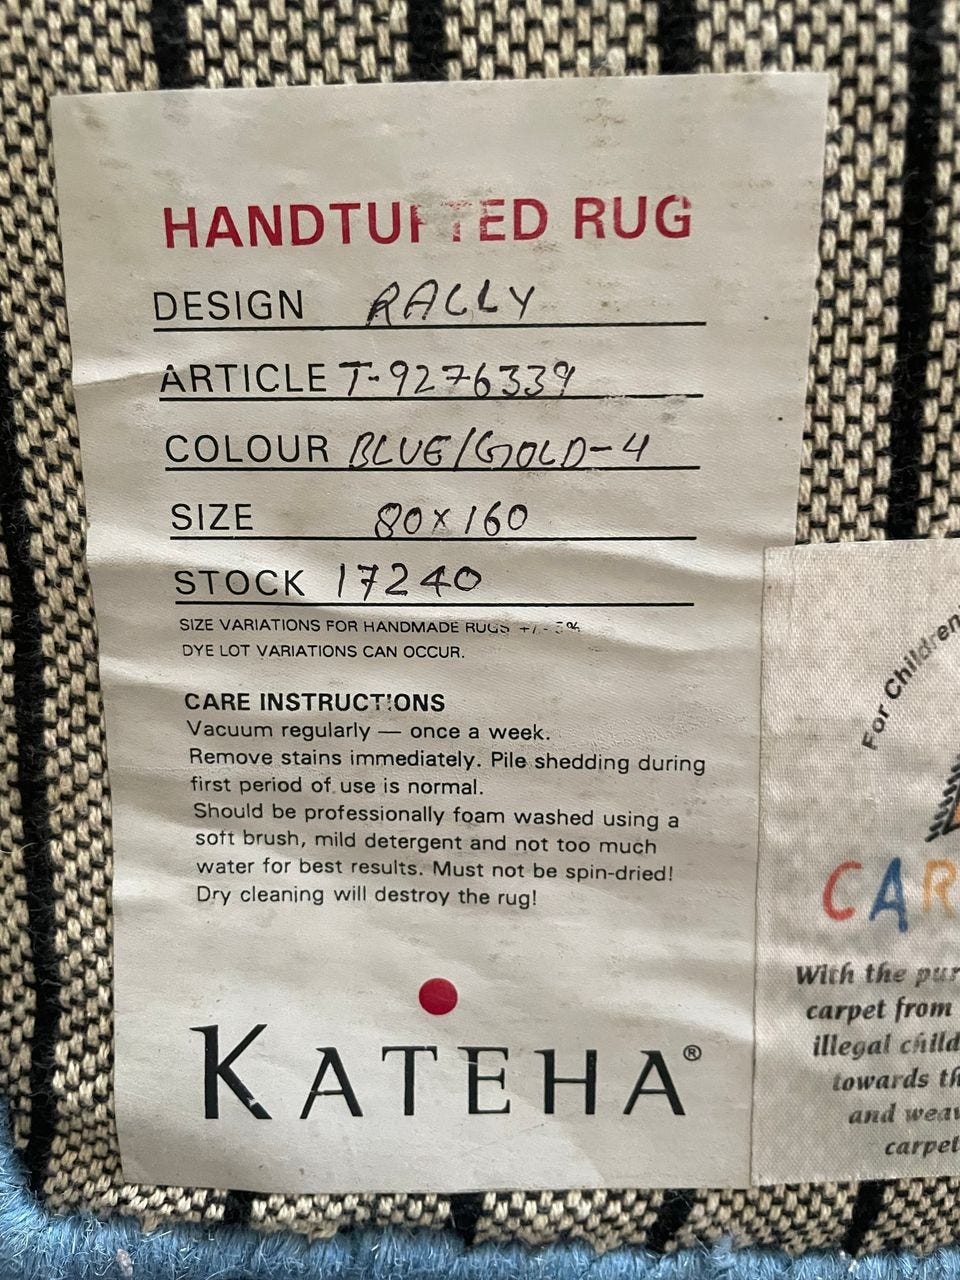 HANDTUFTED RUG
DESIGN RALLY
ARTICLE T-9276339
COLOUR BLUE/GOLD-4
SIZE 80x160
STOCK 17240
SIZE VARIATIONS FOR HANDMADE RUGS +/-
DYE LOT VARIATIONS CAN OCCUR.
CARE INSTRUCTIONS
Vacuum regularly — once a week.
Remove stains immediately. Pile shedding during
first period of use is normal.
Should be professionally foam washed using a
soft brush, mild detergent and not too much
water for best results. Must not be spin-dried!
Dry cleaning will destroy the rug!
KATEHA®
For Children
CAR
With the pur
carpet from
illegal child
towards th
and weav
carpet